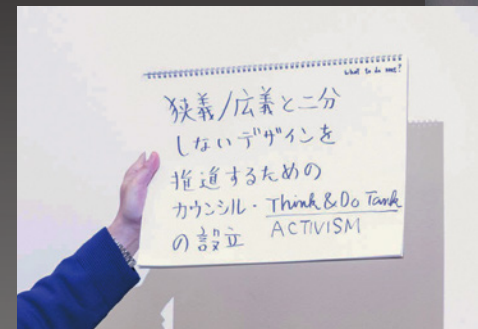 what to do next?
狭義/広義と二分
しないデザインを
推進するための
カウンシル・Think & Do Tank
ACTIVISM
の設立